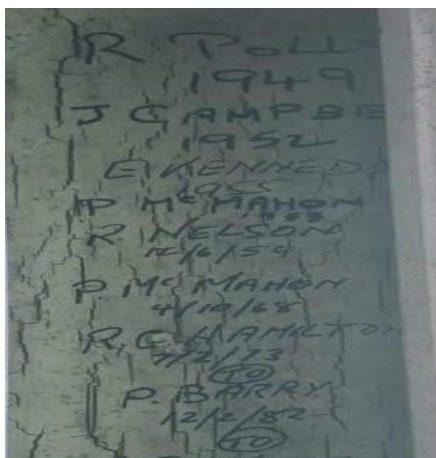 R POLLY
1949
J CAMPBE
1952
E KENNEDY
1955
P MCMAHON
R. NELSON
12/6/59
P MCMAHON
4/10/68
R.C HAMILTON
7/2/73
TO
P. BARRY
12/2/82
TO